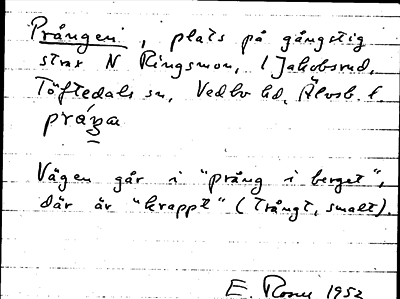 Prången, plats på gångstig
strax N Ringsmon, l Jakobsrud,
Töftedals sn, Vedbo hd, Älvsb. l.
Vägen går i "prång i berget",
där är "krappt" (trångt, smalt).
E. Rosen 1952